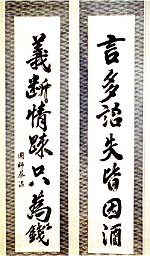 言多語失皆因酒
義断情疎只為錢